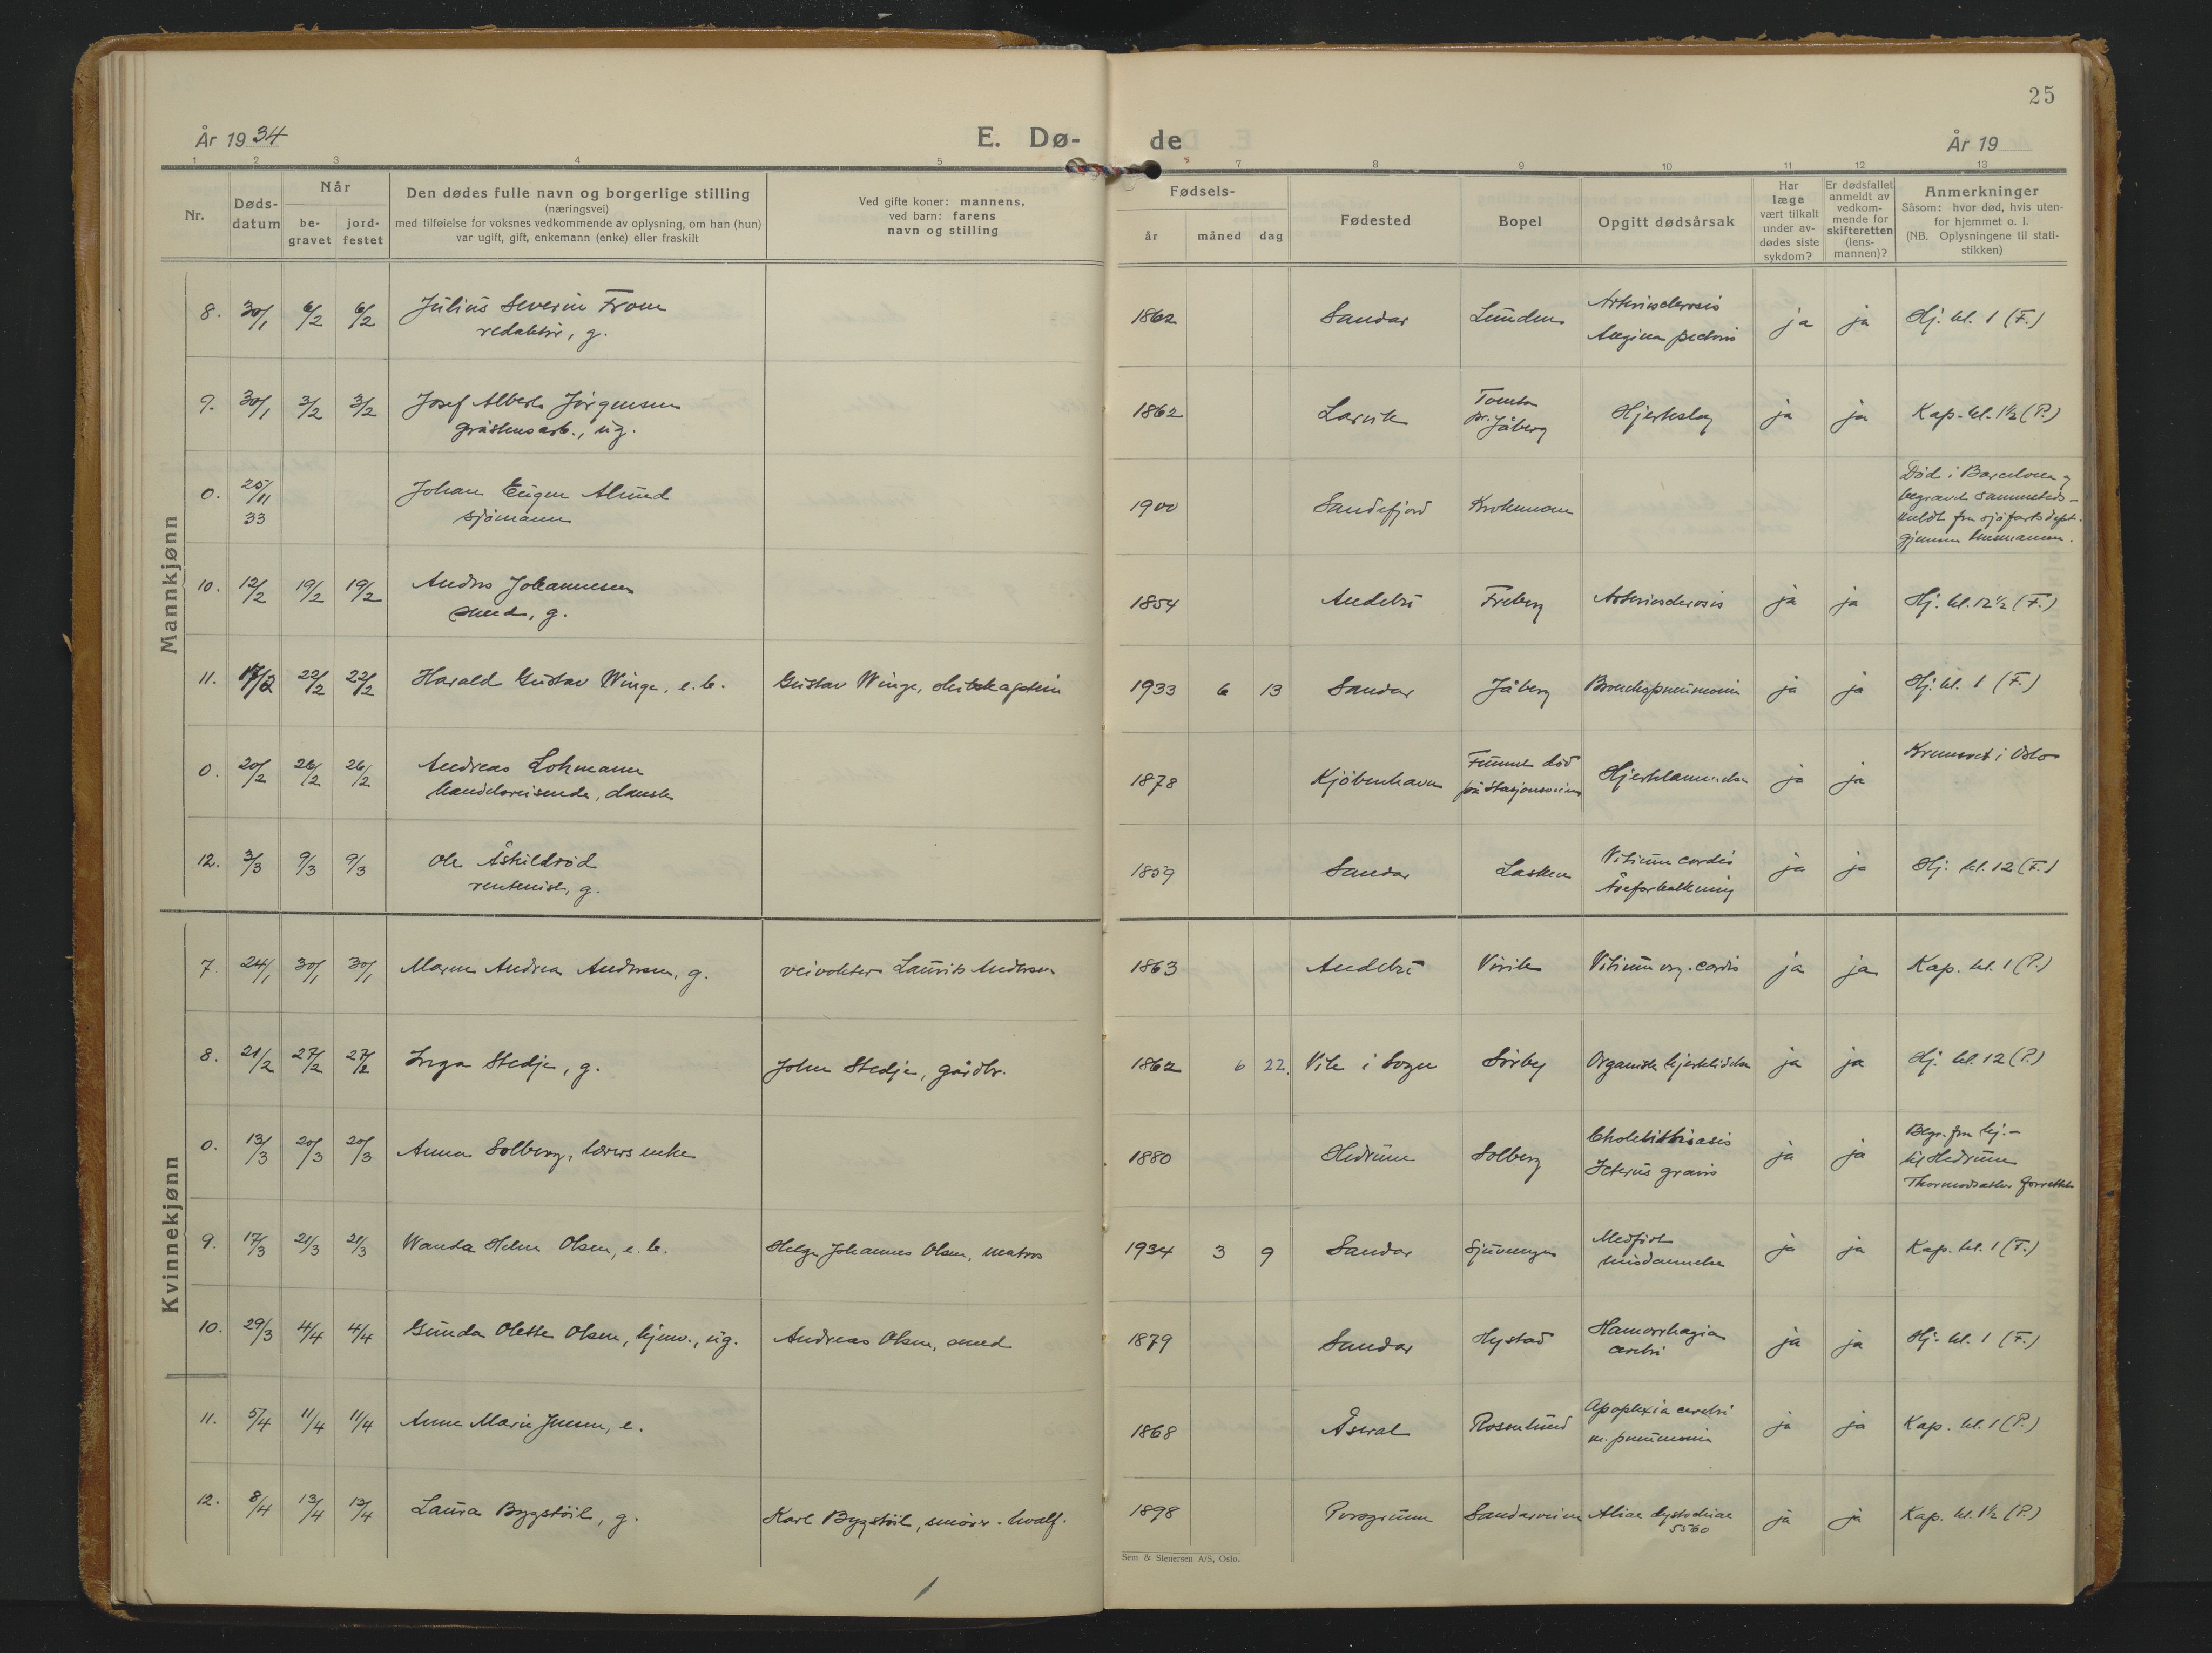 25
År 1934
E. Dø-
de
År 19
1 2 3 4 5 7 8 9 10 11 12 13
Nr.
Døds-
datum
Når
be-
gravet
jord-
festet
Den dødes fulle navn og borgerlige stilling
(næringsvei)
med tilføielse for voksnes vedkommende av oplysning, om han (hun)
var ugift, gift, enkemann (enke) eller fraskilt
Ved gifte koner: mannens,
ved barn: farens
navn og stilling
Fødsels-
år
måned
dag
Fødested
Bopel
Opgitt dødsårsak
Har
læge
vært tilkalt
under av-
dødes siste
sykdom?
Er dødsfallet
anmeldt av
vedkom-
mende for
skifteretten
(lens-
mannen)?
Anmerkninger
Såsom: hvor død, hvis uten-
for hjemmet o. l.
(NB. Oplysningene til stati-
stikken)
Mannkjønn
8. 30/1 6/2 6/2 Julius Severin From
redaktør, g.
1862 Sandar Lunden Arteriosclerosis
Angina pectoris
ja ja Hj. kl. 1 (F.)
9. 30/1 3/2 3/2 Josef Albert Jörgensen
gråstensarb., ug.
1862 Larvik Tomta
pr. Jåberg
Hjerteslag ja ja Kap. kl. 1½ (P.)
0. 25/11
33
Johan Eugen Alund
sjömann
1900 Sandefjord Krokemoen
Död i Barcelona og
begravet sammesteds -
meldt fra sjöfartsdept.
gjennem lensmannen.
10. 12/2 19/2 19/2 Anders Johannesen
smed, g.
1854 Andebu Freberg Arteriosclerosis ja ja Hj. kl. 12½ (F.)
11. 17/2 22/2 22/2 Harald Gustav Winge, e. b. Gustav Winge, skibskaptein
1933 6 13 Sandar Jåberg Bronchopneumonia ja ja Hj. kl. 1 (F.)
0. 20/2 26/2 26/2 Andreas Lohmann
handelsreisende, dansk
1878 Kjöbenhavn Funnet död
på Stasjonsveien
Hjertelammelse ja ja Kremert i Oslo
12. 3/3 9/3 9/3 Ole Åskildröd
rentenist, g.
1859 Sandar Lasken Vitium cordis
Åreforkalkning
ja ja Hj. kl. 12 (F.)
Kvinnekjønn
7. 24/1 30/1 30/1 Maren Andrea Andersen, g. veivokter Laurits Andersen
1863 Andebu Virik Vitium org. cordis ja ja Kap. kl. 1 (P.)
8. 21/2 27/2 27/2 Inga Stedje, g. John Stedje, gårdbr.
1862 6 22. Vik i Sogn Sörby Organisk hjertelidelse ja ja Hj. kl. 12 (P.)
0. 13/3 20/3 20/3 Anna Solberg, lærers enke
1880 Hedrum Solberg Cholelithiasis
Icterus gravis
ja ja Begr. fra hj. -
til Hedrum
Thormodsæter forrettet
9. 17/3 21/3 21/3 Wanda Helen Olsen, e. b. Helge Johannes Olsen, matros
1934 3 9 Sandar Sjuvengen Medfödt
misdannelse
ja ja Kap. kl. 1 (F.)
10. 29/3 4/4 4/4 Gunda Olette Olsen, hjemv., ug. Andreas Olsen, smed
1879 Sandar Hystad Hamorrhagia
cerebri
ja ja Hj. kl. 1 (F.)
11. 5/4 11/4 11/4 Anne Marie Jensen, e.
1868 Åseral Rosenlund Apoplexia cerebri
m. pneumonia
ja ja Kap. kl. 1 (P.)
12. 8/4 13/4 13/4 Laura Bygstöil, g. Karl Bygstöil, smörer. hvalf.
1898 Porsgrunn Sandarveien Aliae dystochiae
5560
ja ja Kap. kl. 1½ (P.)
Sem & Stenersen A/S, Oslo.